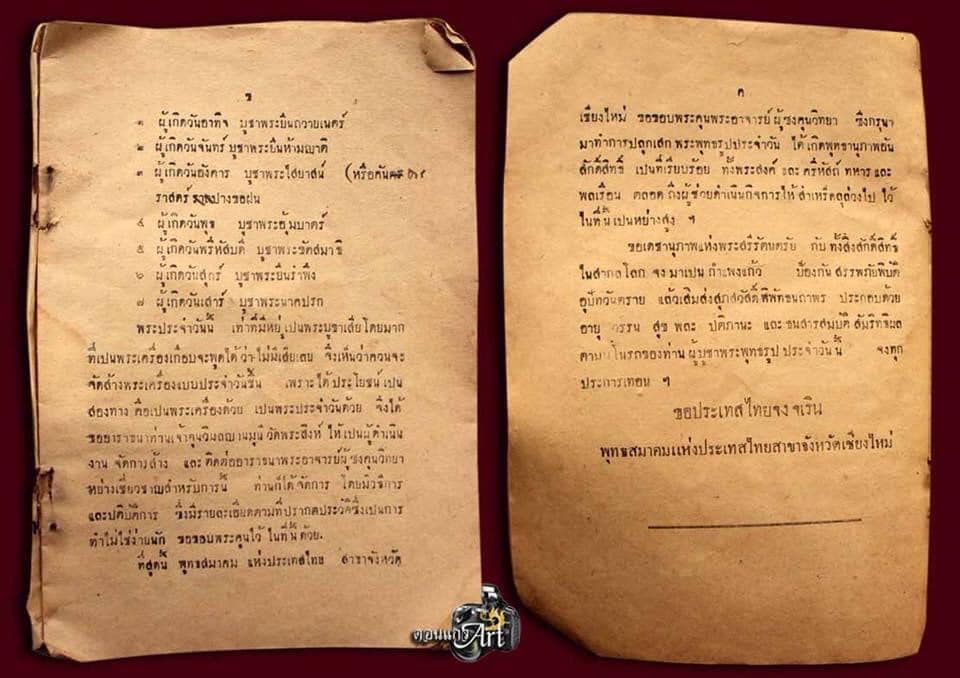 ข
๑ ผู้เกิดวันอาทิจ บูชาพระยืนถวายเนตร์
๒ ผู้เกิดวันจันทร์ บูชาพระยืนห้ามญาติ
๓ ผู้เกิดวันอังคาร บูชาพระไสยาสน์ (หรือคัน
ราสตร์ ปางขอฝน
๔ ผู้เกิดวันพุธ บูชาพระอุ้มบาตร์
๕ ผู้เกิดวันพรึหัสบดี บูชาพระขัดสมาธิ
๖ ผู้เกิดวันสุกร์ บูชาพระยืนรำพึง
๗ ผู้เกิดวันเสาร์ บูชาพระนาคปรก
พระประจำวันนี้ เท่าที่มีหยู่เปนพระบูชาเสียโดยมาก
ที่เปนพระเครื่องเกือบจะพูดได้ว่าไม่มีเสียเลย จึงเห็นว่าควนจะ
จัดส้างพระเครื่องแบบประจำวันขึ้น เพราะได้ประโยชน์เปน
สองทาง คือเปนพระเครื่องด้วย เปนพระประจำวันด้วย จึงได้
ขออาราธนาท่านเจ้าคุนวิมลญานมุนี วัดพระสิงห์ ไห้เปนผู้ดำเนิน
งาน จัดการส้าง และติดต่ออาราธนาพระอาจารย์ผู้ซงคุนวิทยา
หย่างเชี่ยวชาญสำหรับการนี้ ท่านก็ได้จัดการ โดยมีวิธีการ
และปติบัติการ ซึ่งมีรายละเอียดตามที่ปรากตประวัติซึ่งเปนการ
ทำไม่ไช่ง่ายนัก ขอขอบพระคุนไว้ ไนที่นี้ด้วย.
ที่สุดนี้ พุทธสมาคม แห่งประเทสไทย สาขาจังหวัด
ค
เชียงใหม่ ขอขอบพระคุนพระอาจารย์ ผู้ซงคุนวิทยา ซึ่งกรุนา
มาทำการปลุกเสก พระพุทธรูปประจำวัน ได้เกิดพุทธานุภาพอัน
สักดิ์สิทธิ์ เปนที่เรียบร้อย ทั้งพระสงค์ และ ครึหัสถ์ ทหาร และ
พลเรือน ตลอด ถึงผู้ช่วยดำเนินกิจการไห้ สำเหร็ดลุล่วงไป ไว้
ไนที่นี้ เปนหย่างสูง ฯ
ขอเดชานุภาพแห่งพระสรีรัตนตรัย กับ ทั้งสิ่งสักดิ์สิทธิ์
ไนสากลโลก จงมาเปน กำแพงแก้ว ป้องกัน สรรพภัยพิบัติ
อุปัทวันตราย แล้วเสิมส่งสุภสวัสดิ์พิพัธนถาพร ประกอบด้วย
อายุ วรรน สุข พละ ปติภานะ และ ธนสารสมบัติ สัมริทธิผล
ไนรถของท่าน ผู้บูชาพระพุทธรูป ประจำวันนี้ จงทุก
ประการเทอน ฯ
ขอประเทสไทยจงจเริน
พุทธสมาคมแห่งประเทสไทยสาขาจังหวัดเชียงใหม่
ดอนแก้ว Art